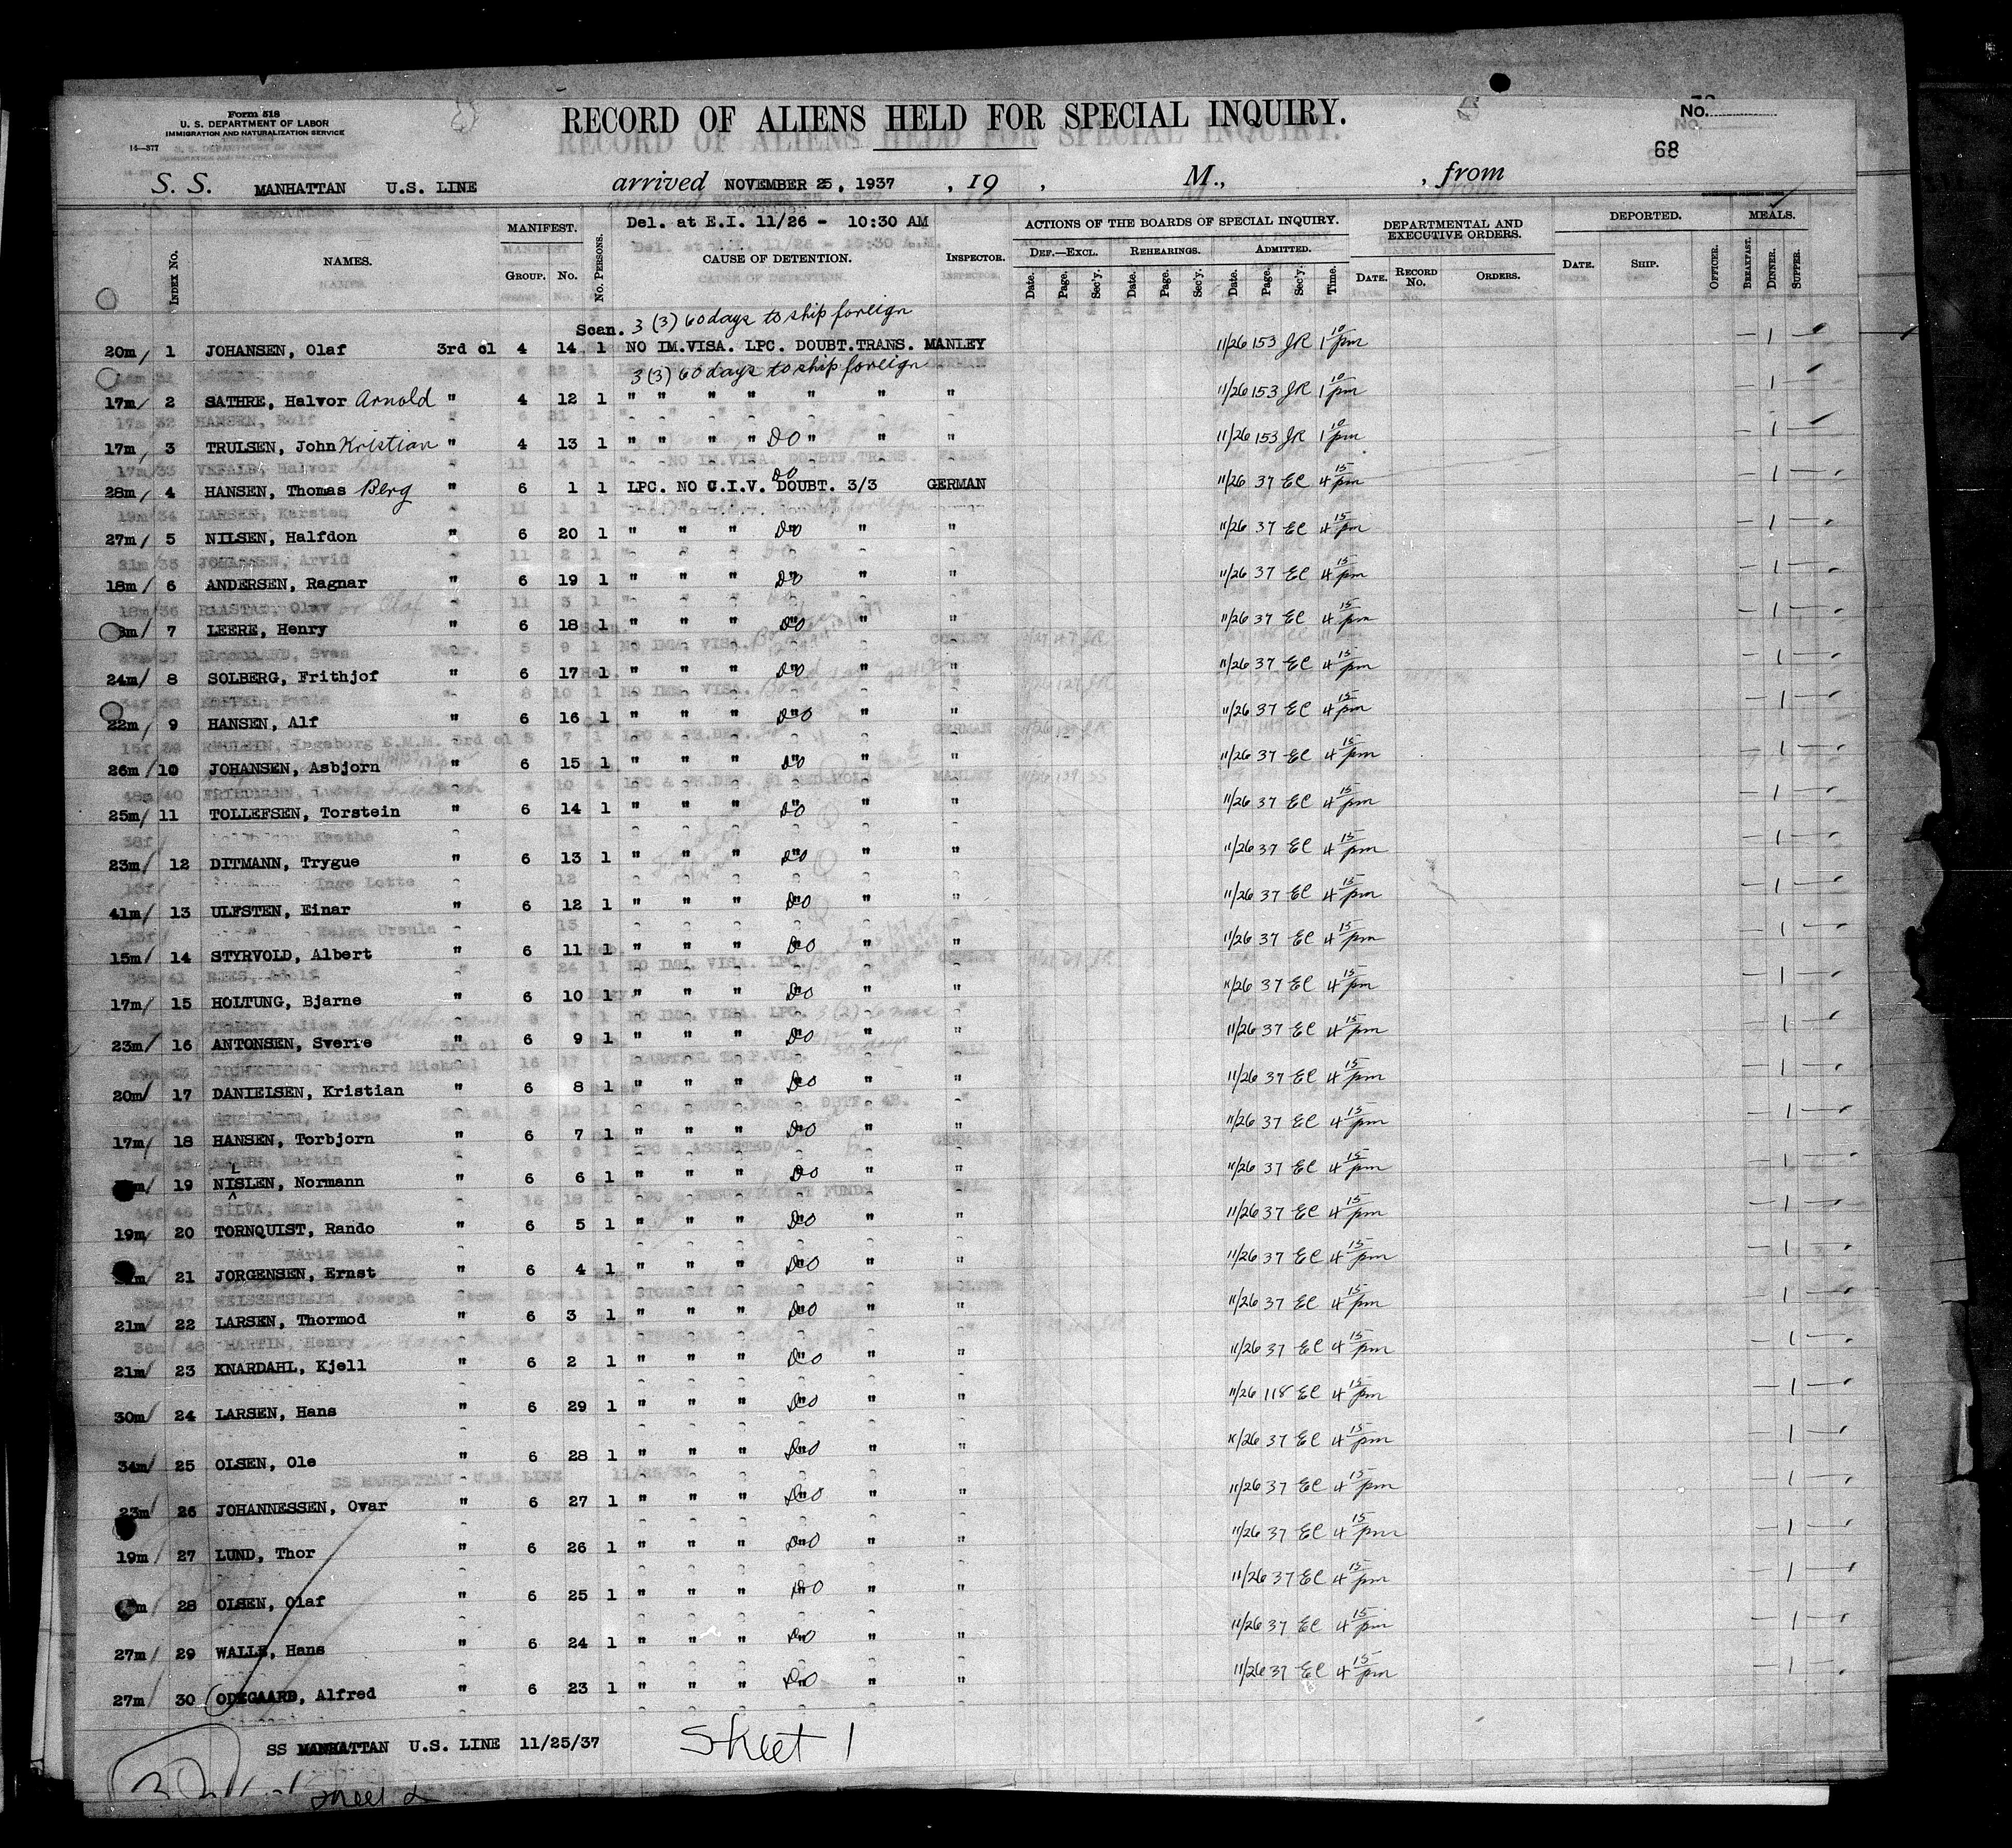 Form 518
U. S. DEPARTMENT OF LABOR
IMMIGRATION AND NATURALIZATION SERVICE
14—377
RECORD OF ALIENS HELD FOR SPECIAL INQUIRY.
No.
68
S. S. MANHATTAN U.S. LINE arrived NOVEMBER 25, 1937 , 19 , M., , from
INDEX No. NAMES. MANIFEST. GROUP. No. No. PERSONS. Del. at E.I. 11/26 - 10:30 AM CAUSE OF DETENTION. INSPECTOR. ACTIONS OF THE BOARDS OF SPECIAL INQUIRY. DEPARTMENTAL AND EXECUTIVE ORDERS. DEPORTED. MEALS.
DEF.—EXCL. REHEARINGS. ADMITTED.
Date. Page. Sec'y. Date. Page. Sec'y. Date. Page. Sec'y. Time. DATE. RECORD No. ORDERS. DATE. SHIP. OFFICER. BREAKFAST. DINNER. SUPPER.
Scan. 3 (3) 60 days to ship foreign
20m/ 1 JOHANSEN, Olaf 3rd cl 4 14 1 NO IM.VISA. LPC. DOUBT.TRANS. MANLEY 11/26 153 JR 1 10 pm — 1
3 (3) 60 days to ship foreign
17m/ 2 SATHRE, Halvor Arnold " 4 12 1 " " " " " " " 11/26 153 JR 1 10 pm — 1
17m/ 3 TRULSEN, John Kristian " 4 13 1 " " " " DO " " " 11/26 153 JR 1 10 pm — 1
28m/ 4 HANSEN, Thomas Berg " 6 1 1 LPC. NO C.I.V. DOUBT. 3/3 DO GERMAN 11/26 37 EC 4 15 pm — 1
27m/ 5 NILSEN, Halfdon " 6 20 1 " " " DO " " 11/26 37 EC 4 15 pm — 1
18m/ 6 ANDERSEN, Ragnar " 6 19 1 " " " DO " " 11/26 37 EC 4 15 pm — 1
m/ 7 LEERE, Henry " 6 18 1 " " " DO " " 11/26 37 EC 4 15 pm — 1
24m/ 8 SOLBERG, Frithjof " 6 17 1 " " " DO " " 11/26 37 EC 4 15 pm — 1
22m/ 9 HANSEN, Alf " 6 16 1 " " " DO " " 11/26 37 EC 4 15 pm — 1
26m/ 10 JOHANSEN, Asbjorn " 6 15 1 " " " DO " " 11/26 37 EC 4 15 pm — 1
25m/ 11 TOLLEFSEN, Torstein " 6 14 1 " " " DO " " 11/26 37 EC 4 15 pm — 1
23m/ 12 DITMANN, Trygue " 6 13 1 " " " DO " " 11/26 37 EC 4 15 pm — 1
41m/ 13 ULFSTEN, Einar " 6 12 1 " " " DO " " 11/26 37 EC 4 15 pm — 1
15m/ 14 STYRVOLD, Albert " 6 11 1 " " " DO " " 11/26 37 EC 4 15 pm — 1
17m/ 15 HOLTUNG, Bjarne " 6 10 1 " " " DO " " 11/26 37 EC 4 15 pm — 1
23m/ 16 ANTONSEN, Sverre " 6 9 1 " " " DO " " 11/26 37 EC 4 15 pm — 1
20m/ 17 DANIELSEN, Kristian " 6 8 1 " " " DO " " 11/26 37 EC 4 15 pm — 1
17m/ 18 HANSEN, Torbjorn " 6 7 1 " " " DO " " 11/26 37 EC 4 15 pm — 1
m/ 19 NISLEN, Normann " 6 6 1 " " " DO " " 11/26 37 EC 4 15 pm — 1
19m/ 20 TORNQUIST, Rando " 6 5 1 " " " DO " " 11/26 37 EC 4 15 pm — 1
m/ 21 JORGENSEN, Ernst " 6 4 1 " " " DO " " 11/26 37 EC 4 15 pm — 1
21m/ 22 LARSEN, Thormod " 6 3 1 " " " DO " " 11/26 37 EC 4 15 pm — 1
21m/ 23 KNARDAHL, Kjell " 6 2 1 " " " DO " " 11/26 37 EC 4 15 pm — 1
30m/ 24 LARSEN, Hans " 6 29 1 " " " DO " " 11/26 118 EC 4 15 pm — 1
34m/ 25 OLSEN, Ole " 6 28 1 " " " DO " " 11/26 37 EC 4 15 pm — 1
23m/ 26 JOHANNESSEN, Ovar " 6 27 1 " " " DO " " 11/26 37 EC 4 15 pm — 1
19m/ 27 LUND, Thor " 6 26 1 " " " DO " " 11/26 37 EC 4 15 pm — 1
m/ 28 OLSEN, Olaf " 6 25 1 " " " DO " " 11/26 37 EC 4 15 pm — 1
27m/ 29 WALLE, Hans " 6 24 1 " " " DO " " 11/26 37 EC 4 15 pm — 1
27m/ 30 ODEGAARD, Alfred " 6 23 1 " " " DO " " 11/26 37 EC 4 15 pm — 1
SS MANHATTAN U.S. LINE 11/25/37 Sheet 1
Sheet 2